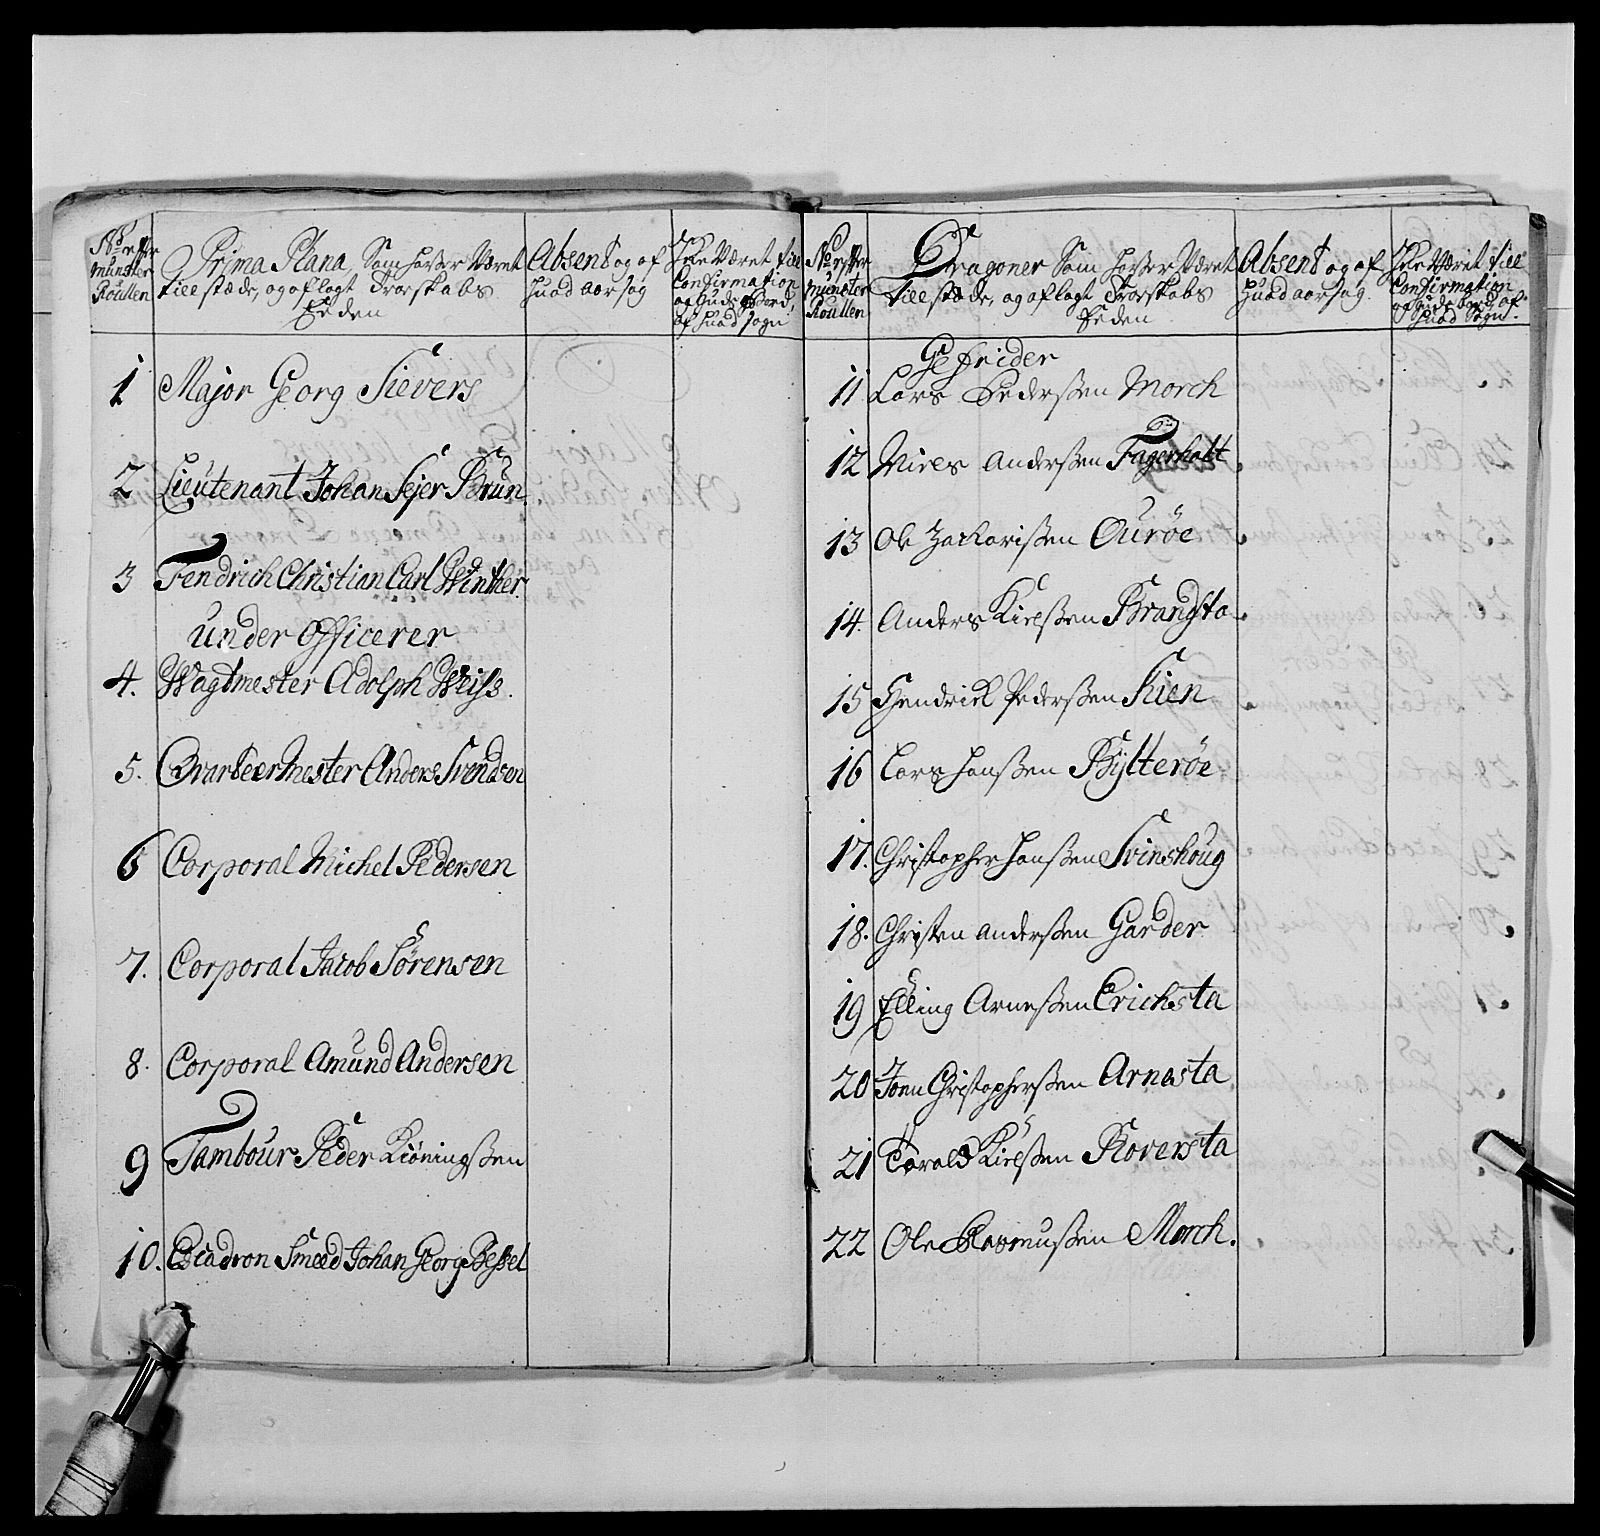 No efter
Münster
Roullen
Prima Plana, Som hafver Været
till stæde, og aflagt Troeskabs
Eeden
Absent og af
huad aarsag
Icke Været till
Confirmation
og Guds Bord,
af huad Sogn
1 Major Georg Sievers
2 Lieutenant Johan Sejer Brun.
3 Fendrich Christian Carl Winther
under Officerer
4. Wagtmester Adolph Weiss.
5. Qvarteermester Anders Svendsen
6 Corporal Michel Pedersen
7. Corporal Jacob Sørensen
8. Corporal Amund Andersen
9 Tambour Peder Kiøningssen
10. Escadron Smeed Johan Georg Bessel
No efter
Münster
Roullen
Dragoner Som hafver Været
till stæde, og aflagt Troeskabs
Eeden
Absent og af
huad aarsag.
Icke Været till
Confirmation
og Guds bord, af
huad Sogn.
Gefrider
11 Lars Pederssen Morch
12 Niels Anderssen Fagerholt
13 Ole Zachrissen Ourøe
14. Anders Kielssen Brandsta
15 Hendrick Pederssen Kien
16 Lars Hanssen Bylterøe
17. Christopher Hanssen Svinshoug
18. Christen Anderssen Garder
19 Elling Arnessen Erichsta
20 Joen Christopherssen Arnesta
21 Torals Kielssen Roversta
22 Ole Rasmussen Morch.